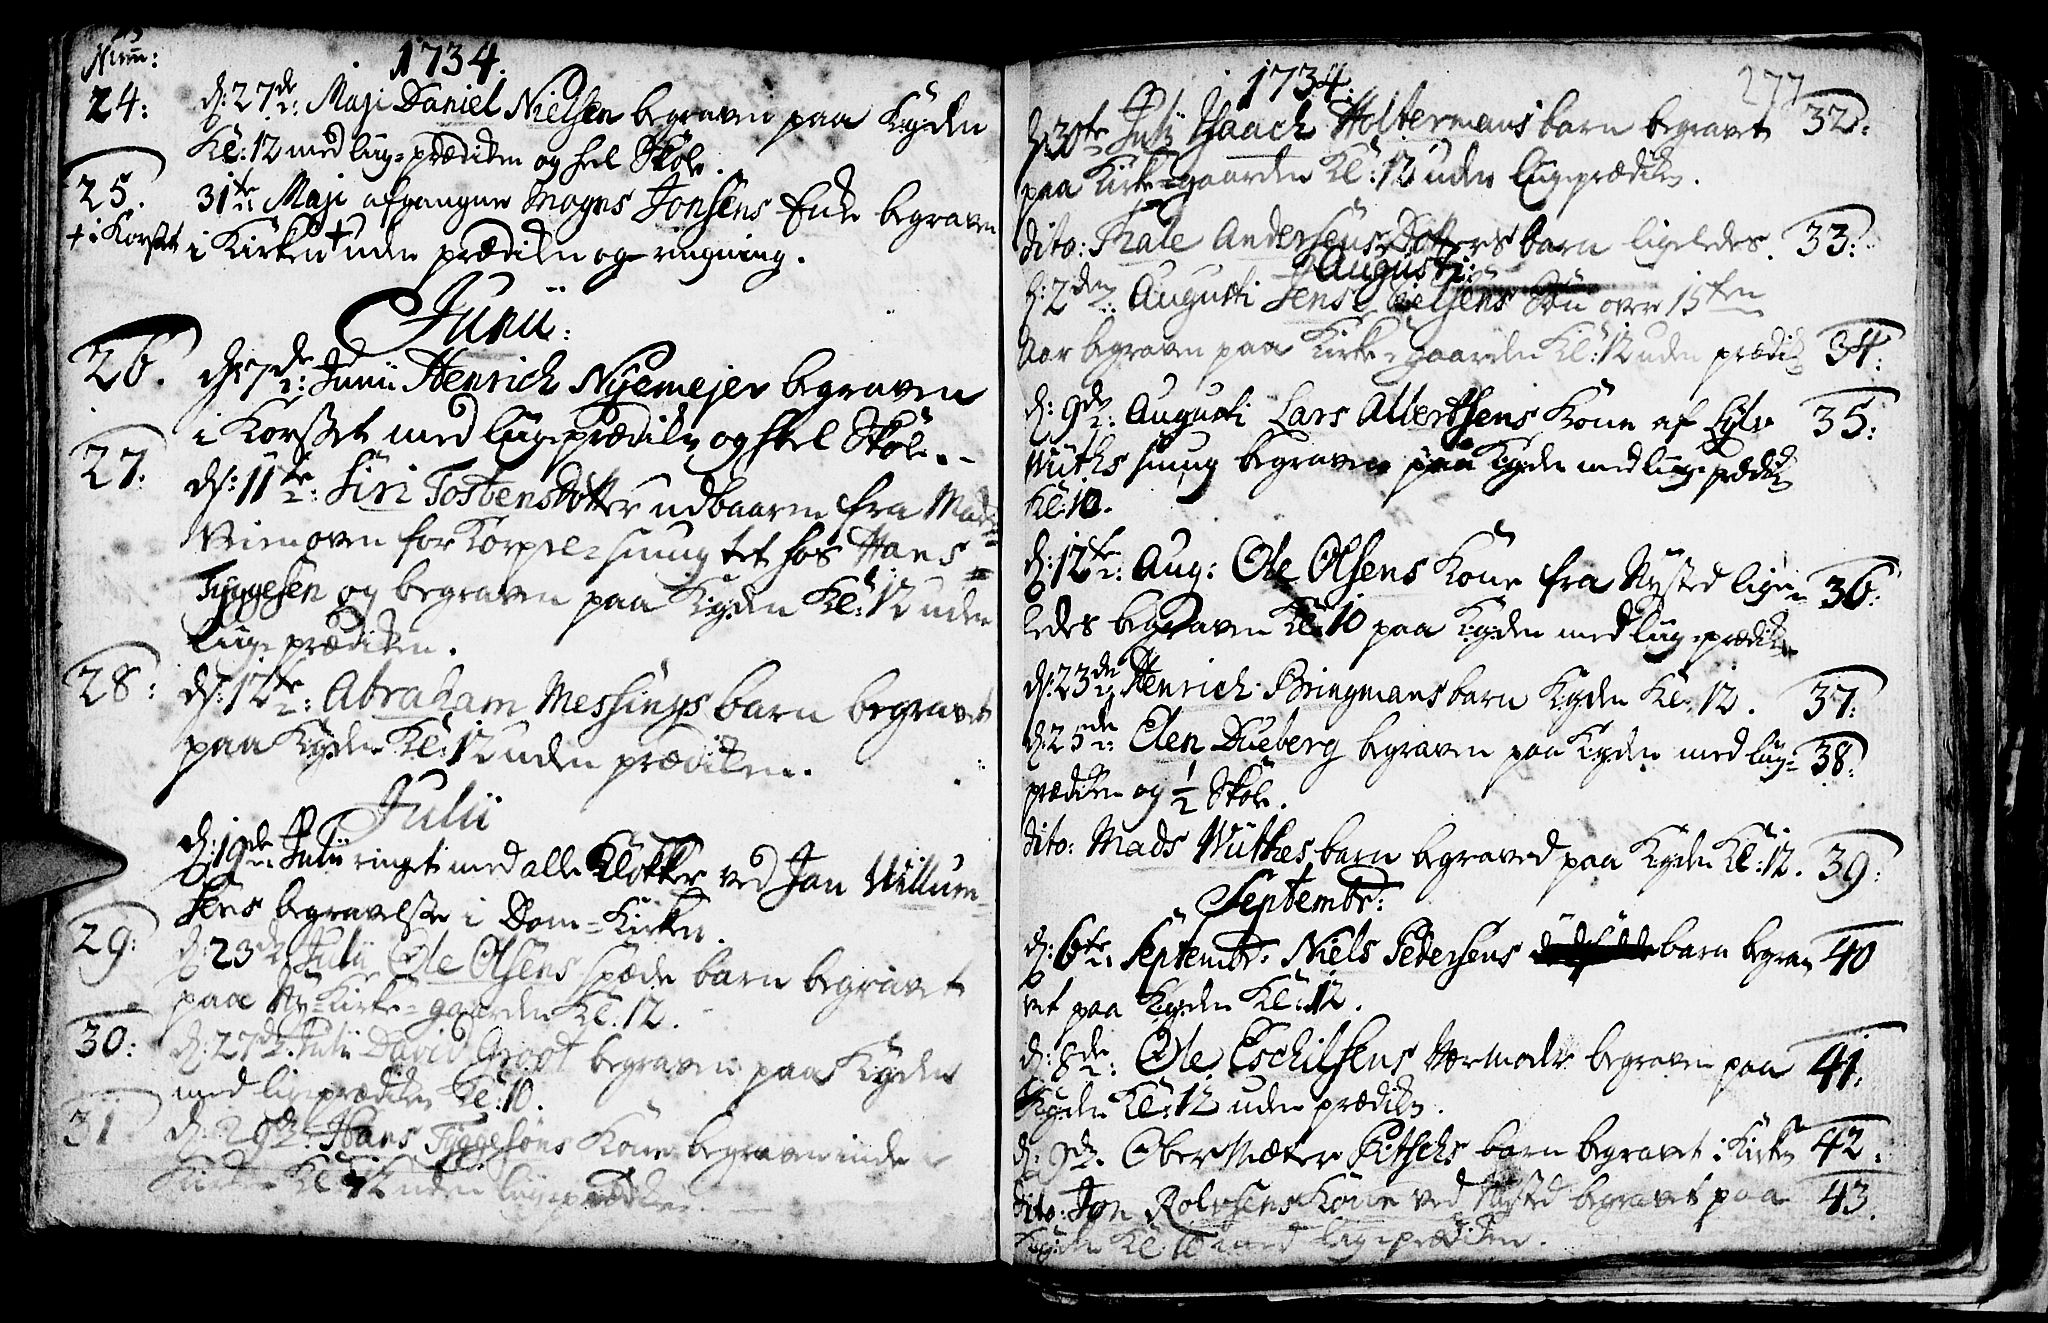 Num:
1734.
24: d: 27de: Maji Daniel Nielsen begraven paa Kgden
Kl: 12 med liig-prædiken og heel Skole.
25. 31te: Maji afgangne Mogns Jonsens Enke begraven
+ i Korset i Kirken + uden prædiken og ringning.
Junii:
26. d: 7de: Junii Henrich Nyemejer begraven
i Korset med liigeprædiken og heel Skole.
27. d: 11te: Siri Tostensdotter udbaaren fra Mads
for Korps-huuset hos Hans
Tyggesen og begraven paa Kgden Kl: 12 uden
liigeprædiken.
28: d: 12te: Abraham Messings barn begravet
paa Kgden Kl: 12 uden prædiken.
Julii
d: 19de Julii ringet med alle Klokker ved Jan Willum-
sens begravelse i Dom-Kirken.
29: d: 23de Julii Ole Olsens spæde barn begravet
paa Ny-Kirke-gaarden Kl: 12.
30: d: 27de. Julii David Groot begraven paa Kgden
med ligeprædiken Kl: 10.
31 d: 29de Hans Tyggesøns Kone begraven inde
Kirken Kl: 12 uden liigeprædiken.
1734.
277
d: 30te Julii Isaach Woltermans barn begravet 32:
paa Kirke-gaarden Kl: 12 uden liigeprædiken.
dito: Thale Andersens Dotters barn ligeledes. 33:
Augusti:
d: 2den: Augusti Jens Nielsens Søn over 15ten
Aar begraven paa Kirke-gaarden Kl: 12 uden prædik 34:
d: 9de: Augusti Lars Albertsens Kone af
Wüths begraven paa Kgden med liigeprædik 35:
Kl: 10.
d: 12te: Aug: Ole Olsens Kone fra Nysted lige- 36:
ledes begraven Kl: 10 paa Kgden med liig-prædiken
d: 23de Henrich Bringmans barn Kgden Kl: 12. 37:
d: 25de: Elen Dueberg begraven paa Kgden med liig- 38:
prædiken og 1/2 Skole.
dito: Mads Wüthes barn begraved paa Kgden Kl: 12. 39:
Septembr:
d: 6te: Septembr: Niels Pedersens dødfødde barn begra- 40
vet paa Kgden Kl: 12.
d: 8de: Ole Eschilsens Værmoder begraven paa 41:
Kgden Kl: 12 uden prædiken.
d: 9de. Ober Mæter Pitschs barn begravet i Kirken 42:
dito: Jon Rolvsens Kone ved Nysted begravet paa 43.
Kgden Kl: 10 med liigeprædiken.